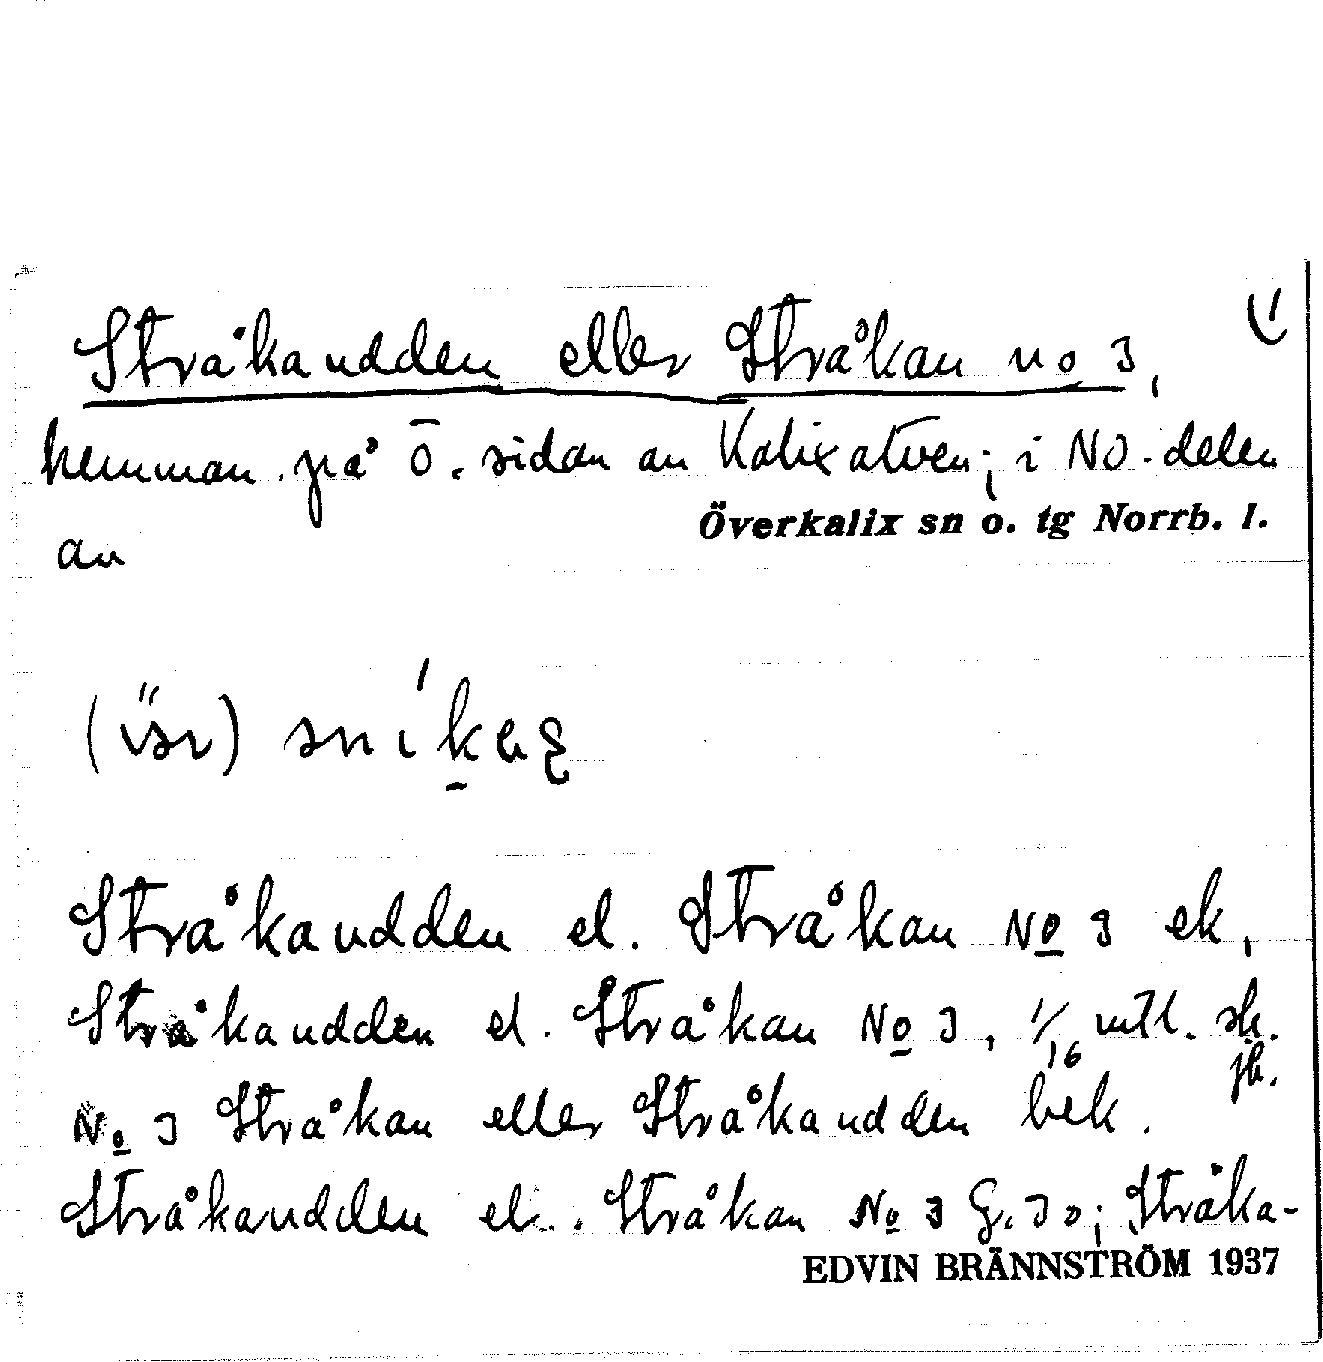 Stråkaudden eller Stråkan no 3,
hemman på ö. sidan av Kalixälven; i NO-delen
Överkalix sn o. tg Norrb. l.
av
Stråkaudden el. Stråkan No 3 ek,
Stråkaudden el. Stråkan No 3, 1/16 mtl. sk.
jb.
No 3 Stråkan eller Stråkaudden bek.
Stråkaudden el. Stråkan No 3 G. 30; Stråka-
EDVIN BRÄNNSTRÖM 1937